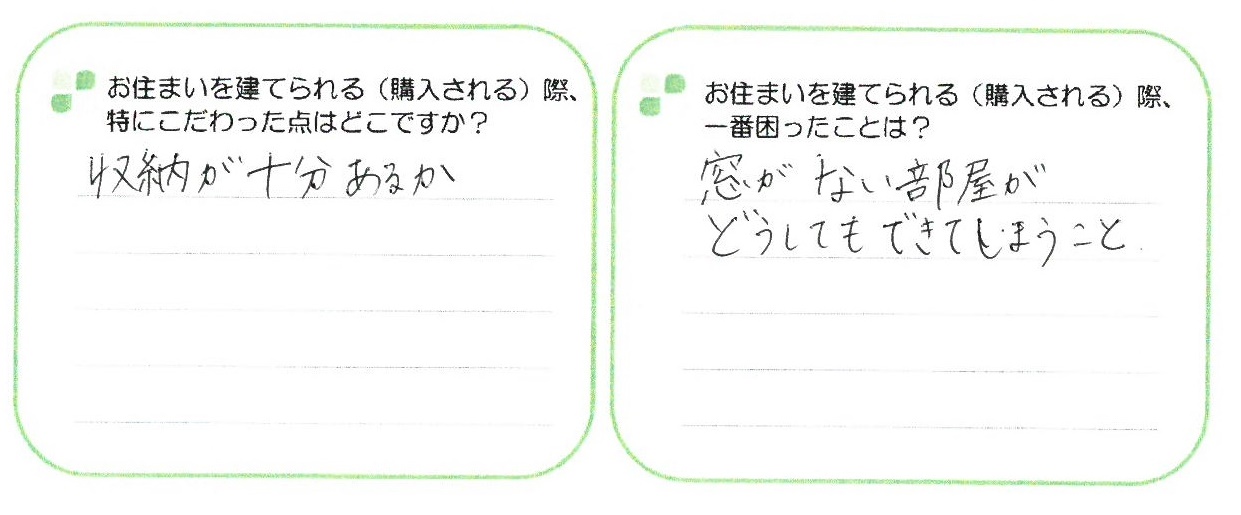 お住まいを建てられる（購入される）際、
特にこだわった点はどこですか？
収納が十分あるか
お住まいを建てられる（購入される）際、
一番困ったことは？
窓がない部屋が
どうしてもできてしまうこと